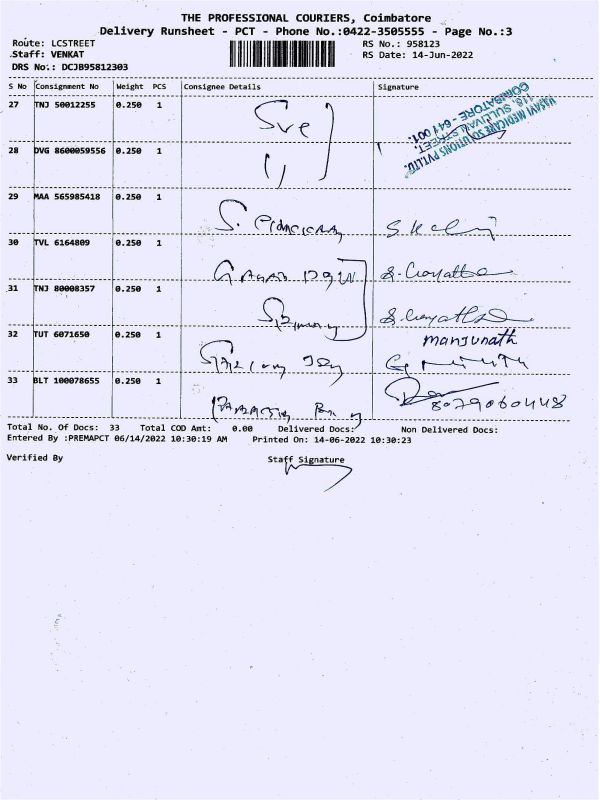 THE PROFESSIONAL COURIERS, Coimbatore
Delivery Runsheet - PCT - Phone No.:0422-3505555 - Page No.:3
Route: LCSTREET
RS No.: 958123
Staff: VENKAT
RS Date: 14-Jun-2022
DRS No.: DCJB95812303
S No Consignment No Weight PCS Consignee Details Signature
27 TNJ 50012255 0.250 1
VASAVI MEDICARE SOLUTIONS PVT.LTD.
118, SULLIVAN STREET,
COIMBATORE - 641 001.
28 DVG 8600059556 0.250 1
29 MAA 565985418 0.250 1
30 TVL 6164809 0.250 1
31 TNJ 80008357 0.250 1
32 TUT 6071650 0.250 1
Manjunath
33 BLT 100078655 0.250 1
Total No. Of Docs: 33 Total COD Amt: 0.00 Delivered Docs: Non Delivered Docs:
Entered By :PREMAPCT 06/14/2022 10:30:19 AM Printed On: 14-06-2022 10:30:23
Verified By Staff Signature